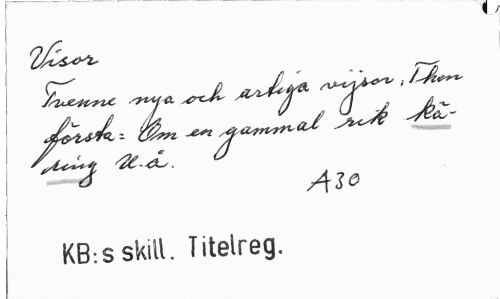 Visor
Tvenne nya och artiga vijsor, Then
första: Om en gammal rik kä-
ring U.å.
A30
KB:s skill. Titelreg.